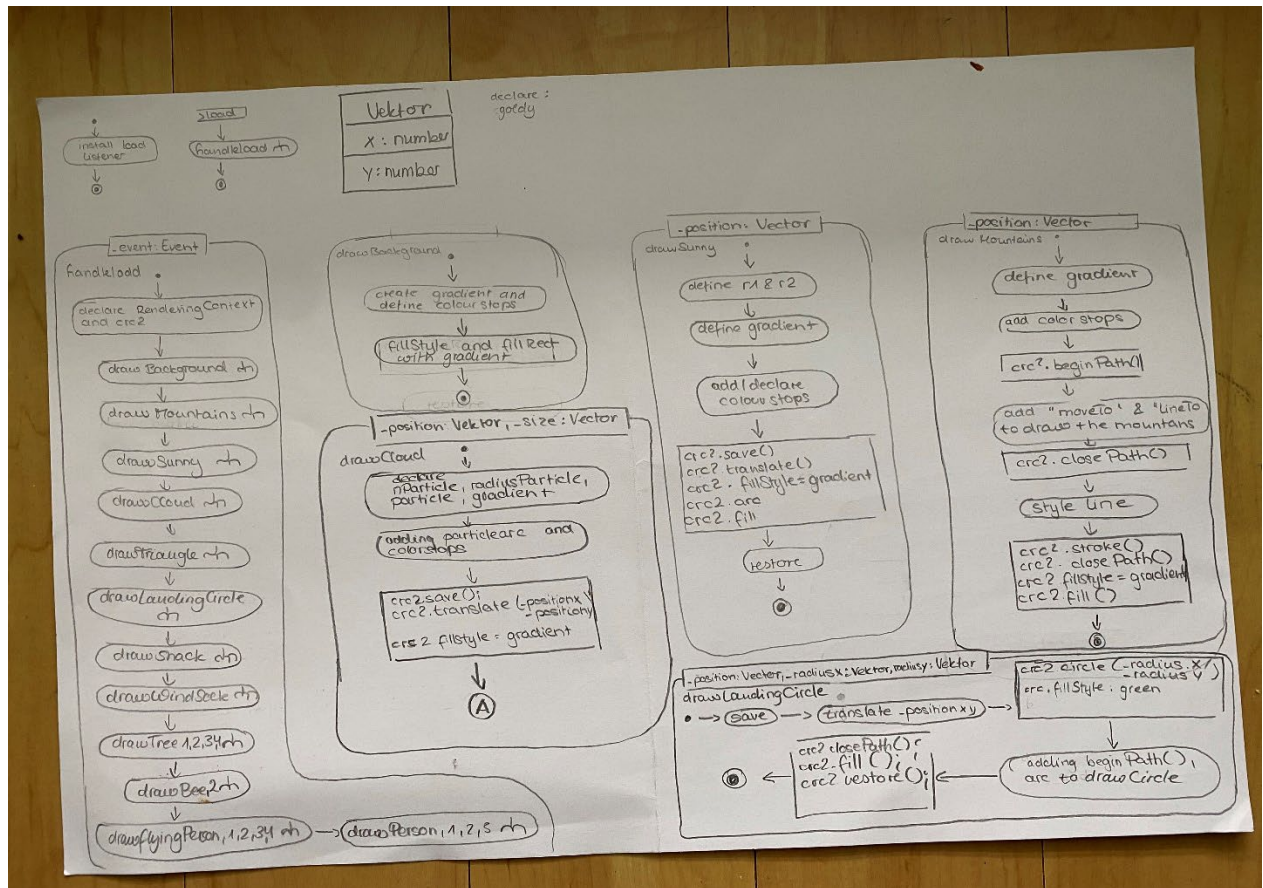 install load
Listener
load
handleload
Vektor
x: number
y: number
declare:
goldy
_event: Event
handleload
declare RenderingContext
and crc2
draw Background
draw Mountains
drawSunny
drawCloud
drawTriangle
drawLandingCircle
drawShack
drawWindSock
drawTree 1,2,3,4
drawBee,2
drawflyingPerson, 1,2,3,4
drawPerson, 1, 2, 5
drawBackground
create gradient and
define colour stops
fillStyle and fillRect
with gradient
restore
_position: Vektor, _size: Vector
drawCloud
declare
nParticle, radiusParticle,
particle, gradient
adding particlearc and
colorstops
crc2.save();
crc2.translate (_positionx
_positiony
crc2 fillstyle = gradient
A
_position: Vector
drawSunny
define r1 & r2
define gradient
add/declare
colour stops
crc2.save()
crc2 translate()
crc2. fillStyle=gradient
crc2.arc
crc2.fill
restore
_position: Vector
draw Mountains
define gradient
add color stops
crc2.beginPath()
add "moveTo' & 'LineTo
to draw the mountans
crc2. closePath()
style line
crc2.stroke()
crc2. closePath()
crc2 fillstyle = gradient
crc2.fill()
_position: Vector, _radiusx: Vektor, radiusy: Vektor
drawLandingCircle
save
translate _position xy
crc2 circle (_radius.x/
_radius y
crc. fillStyle: green
adding beginPath(),
arc to drawCircle
crc2 closePath();
crc2.fill();
crc2 restore();